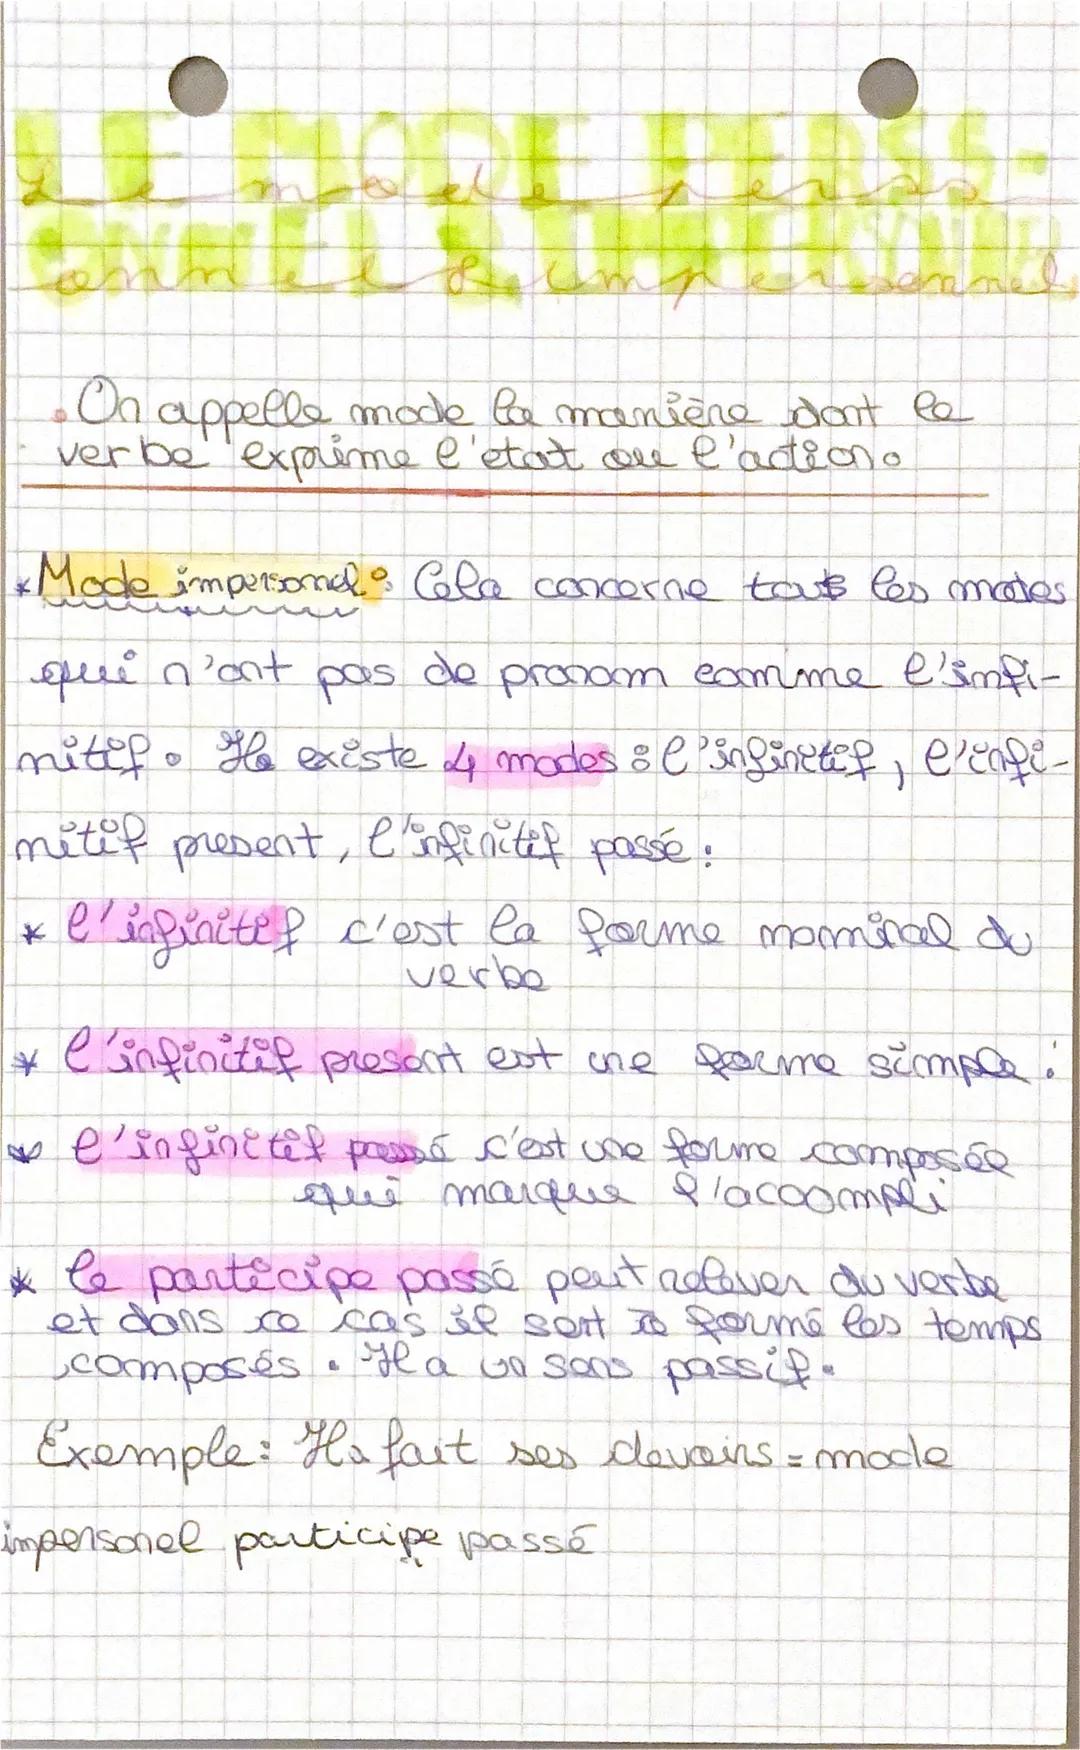 LE MODE PERSS-
Le mode perss-
ONNEL & IMPERSONNEL
onnel & impersonnel
• On appelle mode la manière dont le
verbe exprime l'état ou l'action.
* Mode impersonel : Cela concerne tous les modes
qui n'ont pas de pronom comme l'infi-
nitif. Il existe 4 modes : l'infinitif, l'infi-
nitif present, l'infinitif passé :
* l'infinitif c'est la forme nominal du
verbe
* l'infinitif present est une forme simple :
* l'infinitif passé c'est une forme composée
qui marque l'accompli
* le participe passé peut relever du verbe
et dans ce cas il sert à formé les temps
composés. Il a un sens passif.
Exemple : Il a fait ses devoirs = mode
impersonel participe passé